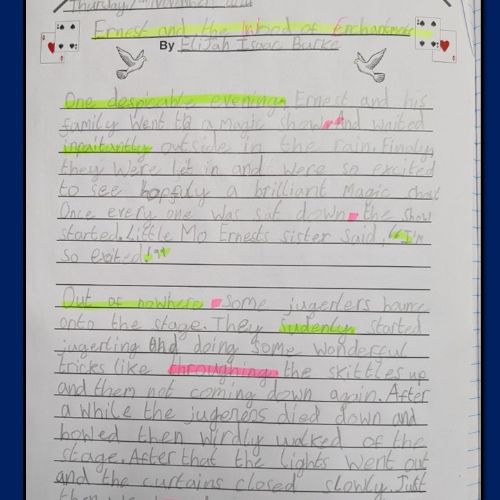 Thursday
Ernest and the Wood of Enchantment
By Elijah Isaac Burke
One despicable evening Ernest and his
family went to a magic show and waited
inpaitantly outside in the rain. Finally
they were let in and were so excited
to see hopfuly a brilliant magic
Once every one was sat down the show
started. Little Mo Ernests sister said, "I'm
so exited!"
Out of nowhere some jugerlers bounce
onto the stage. They sudenly started
jugerling and doing some wonderful
tricks like throughing the skittles up
and them not coming down again. After
a while the jugerlers died down and
bowed then wirdly walked of the
stage. After that the lights went out
and the curtains closed slowly. Just